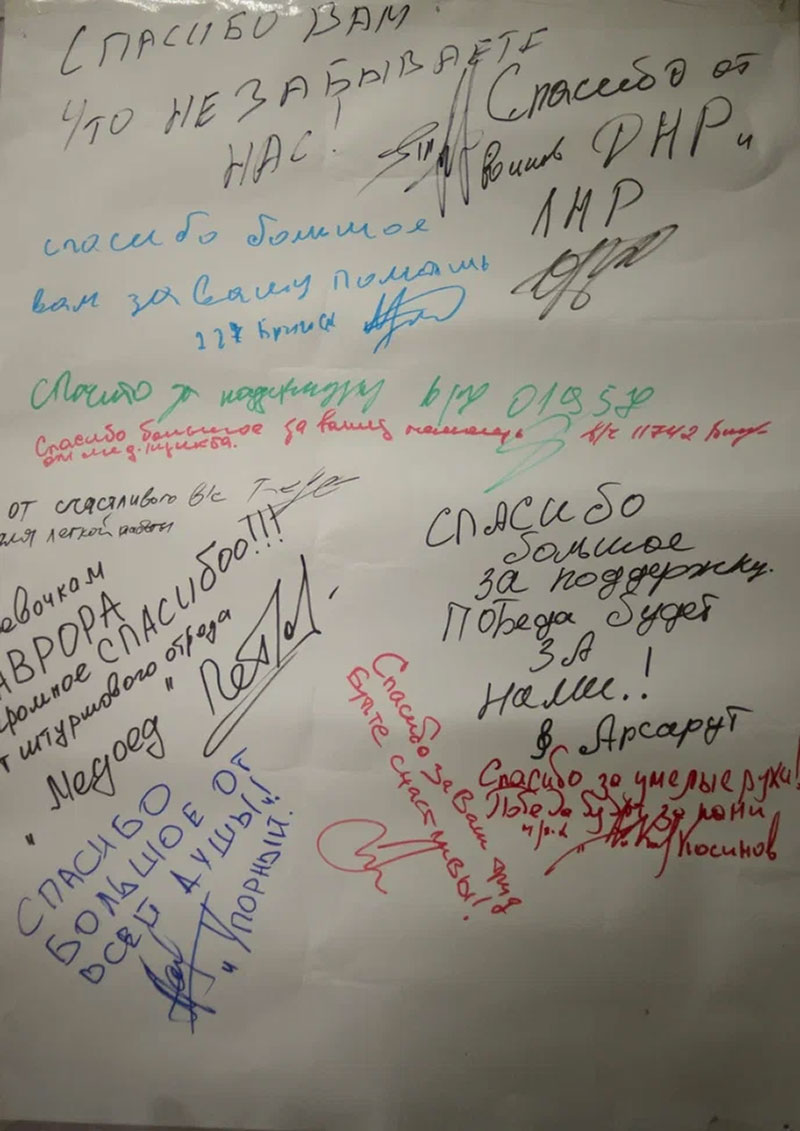 СПАСИБО ВАМ
ЧТО НЕ ЗАБЫВАЕТЕ
НАС!
Спасибо от
воинов ДНР и
ЛНР
спасибо большое
вам за вашу помощь
за поддержку в/ч 01957
Спасибо большое за вашу помощь в/ч 11742
от мед. пункта.
от счастливого в/с
для легкой
АВРОРА
СПАСИБОО!!!
штурмового отряда
"Медоед"
СПАСИБО
большое
за поддержку.
Победа будет
ЗА
нами.!
Арсарут
Спасибо за Ваш труд
Будте счастливы!
Спасибо за умелые руки!
Победа будет за нами
Косинов
СПАСИБО
БОЛЬШОЕ ОТ
ВСЕЙ ДУШЫ!
"Упорный".